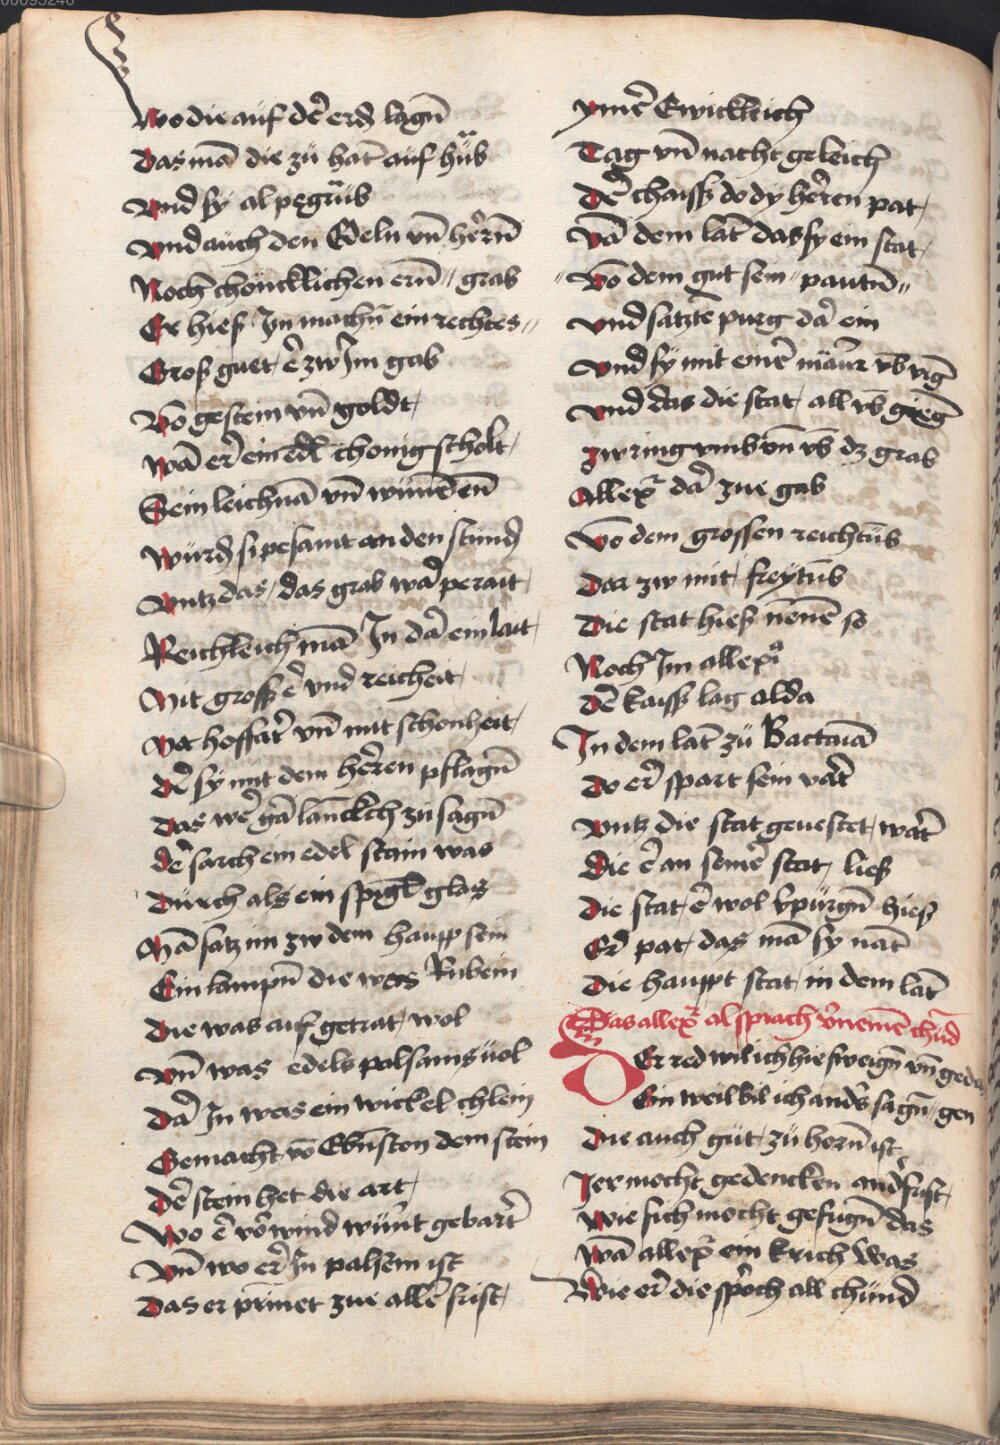 00095240
Wo die auf dē erd lagn̄
Das mā die zü hāt auf hüb
Vnd sy al pegrüb
Vnd auch den Edeln vn̄ hern̄
Noch chöncklichen ern̄ // grab
Er hies Im machn̄ ein rechtes //
Gros guet er̄ zw Im gab
Vō gestein vn̄ goldt
Wā er ein edl chonig scholt
Sein leichnā vn̄ wunden̄
Würd si pesamt an den stund
Vntz das das grab wā perait
Reichleich mā In dā ein lait
Mit gross er̄ vnd reicheit
Mit hoffart vn̄ mit schonheit
Der sy mit dem herren pflagn̄
Das wer gā lancklich zu sagn̄
der sarch ein edel stain was
Durch als ein spigl glas
Mā satz im zw dem haupp sein
Ein lampn̄ die was Rubein
Die was auf getrat wol
Vn̄ was edels palsams uol
Dā In was ein wickel chlein
Gemacht vō Ebnston dem stein
Der stein het die art
Wo er vō wind wurt gebart
Vn̄ wo er In palsem ist
Das er prinnet zue aller frist
ymer Ewickleich
Tag vn̄ nacht geleich
Dē chaiss do dy herren pat
Vā dem lāt das sy ein stat
// Vō dem gut sein // pautn̄ //
Vnd satzte purg dā ein
Vnd sy mit einer maur vb vig
Vnd das die stat all vb gieg
zw ring vmb vn̄ vb dz grab
Allexr dā zue gab
Vō dem grossen reichtüb
Dar zw mit freytūb
Die stat hies nenen so
Noch Im allexr
Dē kaiss lag alda
In dem lāt zü Bactauā
Do er spart sein vart
Vntz die stat geuestet wart
Die er an seiner stat lies
Die stat er wol vpurgn̄ hies
Er pat das mā sy nāt
Die hauppt stat in dem lāt
Das allexr al sprach vnemē chud
Der red wil ich hie sweign̄ vn̄ geda
Ein weil vil ich anders sagn̄ // gen
Die auch güt zü horn̄ ist
Ier mocht gedencken and frist
Wie sich mocht gefugn̄ das
Wā allexr ein krich was
Wie er die sproch all chund